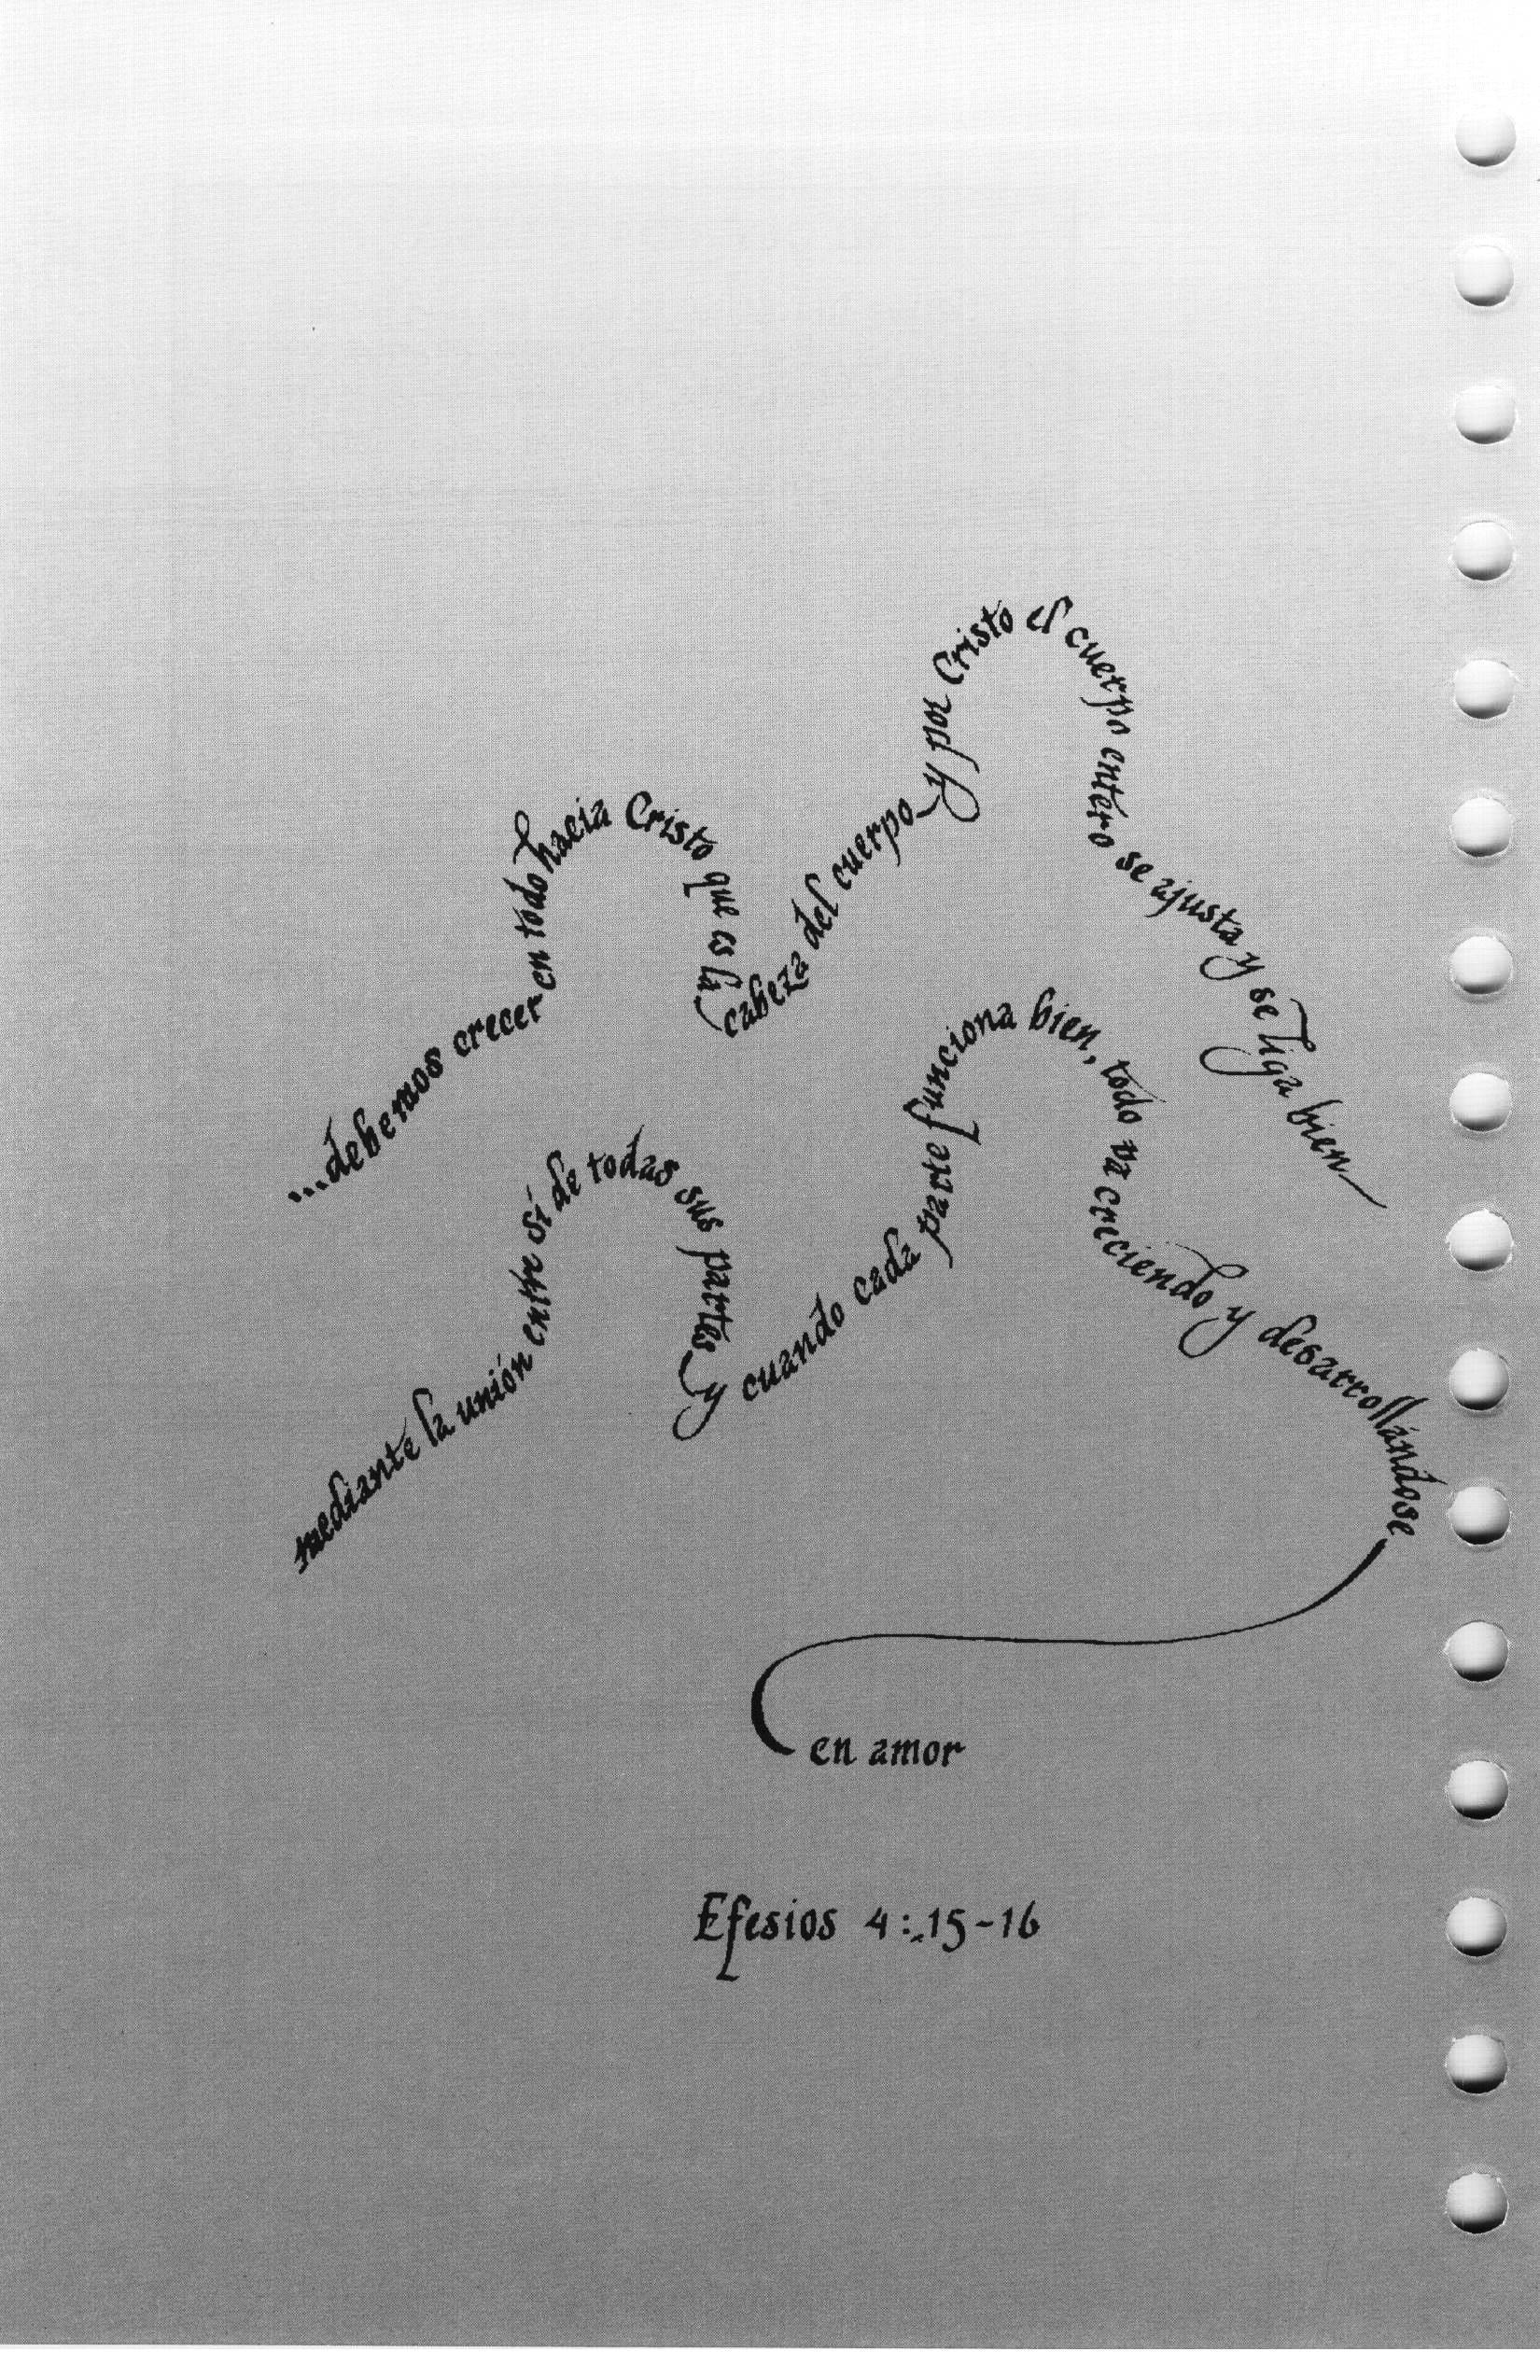 ...debemos crecer en todo hacia Cristo que es la cabeza del cuerpo y por Cristo el cuerpo entero se ajusta y se liga bien
mediante la unión entre sí de todas sus partes y cuando cada parte funciona bien, todo va creciendo y desarrollándose
en amor
Efesios 4:15-16